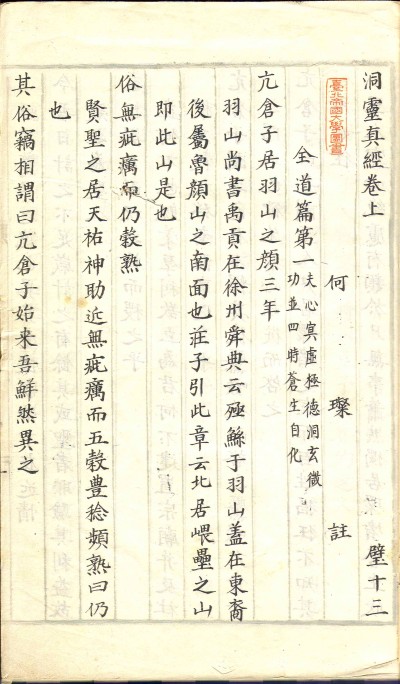 洞靈真經卷上 璧十三
何璨註
全道篇第一 夫心㝠虛極德洞玄微
功並四時蒼生自化
亢倉子居羽山之顔三年
羽山尚書禹貢在徐州舜典云殛鯀于羽山蓋在東裔
後屬魯顔山之南面也莊子引此章云北居喂壘之山
即此山是也
俗無疵癘而仍穀熟
賢聖之居天祐神助近無疵癘而五穀豊稔頻熟曰仍
也
其俗竊相謂曰亢倉子始来吾鮮然異之
臺北帝國大學圖書